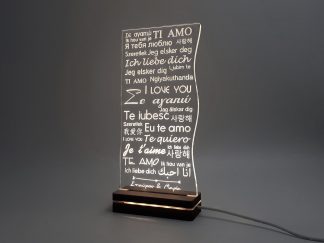 Σε αγαπώ TI AMO
Ik hou van je
Я тебя люблю 사랑해
Szeretlek Jeg elsker deg
Ich liebe dich
Jeg elsker dig Ljubim te
TI AMO Ngiyakuthanda
I LOVE YOU
Σε αγαπώ
Jeg elsker dig
Te iubesc 사랑해
Szeretlek
我爱您 Eu te amo
I LOVE YOU Te quiero
Je t'aime 사랑해
TE AMO Ik hou van je
Ich liebe dich أنا احبك
Σταύρος & Μαρία